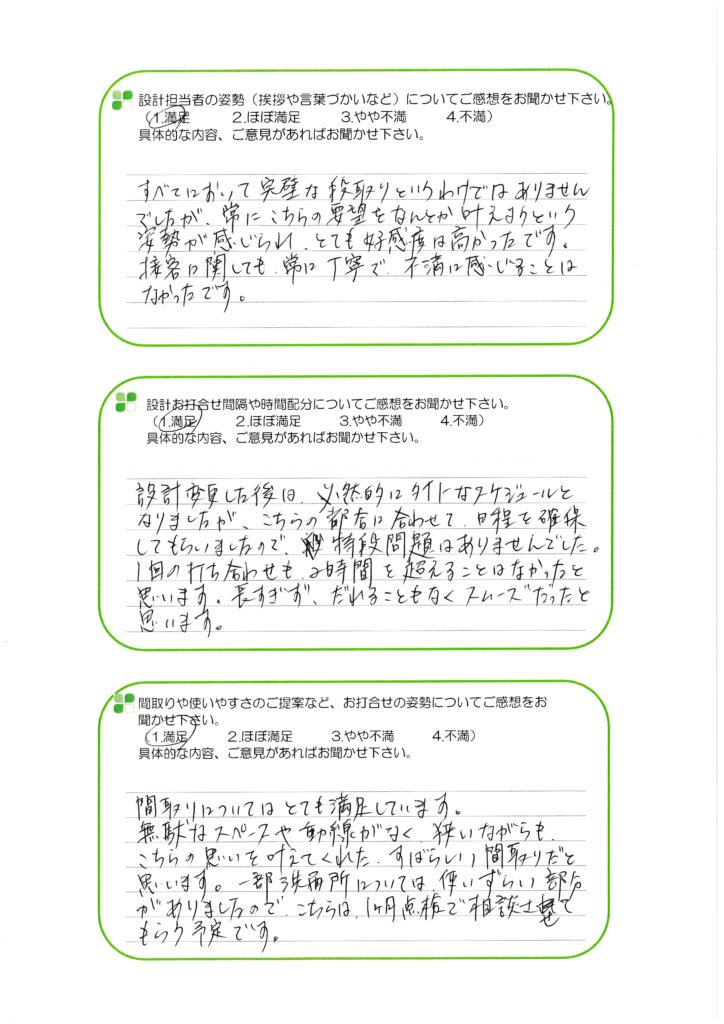 設計担当者の姿勢（挨拶や言葉づかいなど）についてご感想をお聞かせ下さい。
（1.満足 2.ほぼ満足 3.やや不満 4.不満）
具体的な内容、ご意見があればお聞かせ下さい。
すべてにおいて完璧な段取りというわけではありません
でしたが、常にこちらの要望をなんとか叶えようという
姿勢が感じられ、とても好感度は高かったです。
接客に関しても、常に丁寧で、不満に感じることは
なかったです。
設計お打合せ間隔や時間配分についてご感想をお聞かせ下さい。
（1.満足 2.ほぼ満足 3.やや不満 4.不満）
具体的な内容、ご意見があればお聞かせ下さい。
設計変更した後は、必然的にタイトなスケジュールと
なりましたが、こちらの都合に合わせて、日程を確保
してもらいましたので、特段問題はありませんでした。
1回の打ち合わせも、2時間を超えることはなかったと
思います。長すぎず、だれることもなくスムーズだったと
思います。
間取りや使いやすさのご提案など、お打合せの姿勢についてご感想をお
聞かせ下さい。
（1.満足 2.ほぼ満足 3.やや不満 4.不満）
具体的な内容、ご意見があればお聞かせ下さい。
間取りについてはとても満足しています。
無駄なスペースや動線がなく、狭いながらも、
こちらの思いを叶えてくれた、すばらしい間取りだと
思います。一部洗面所については、使いずらい部分
がありましたので、こちらは、1ヶ月点検で相談させて
もらう予定です。